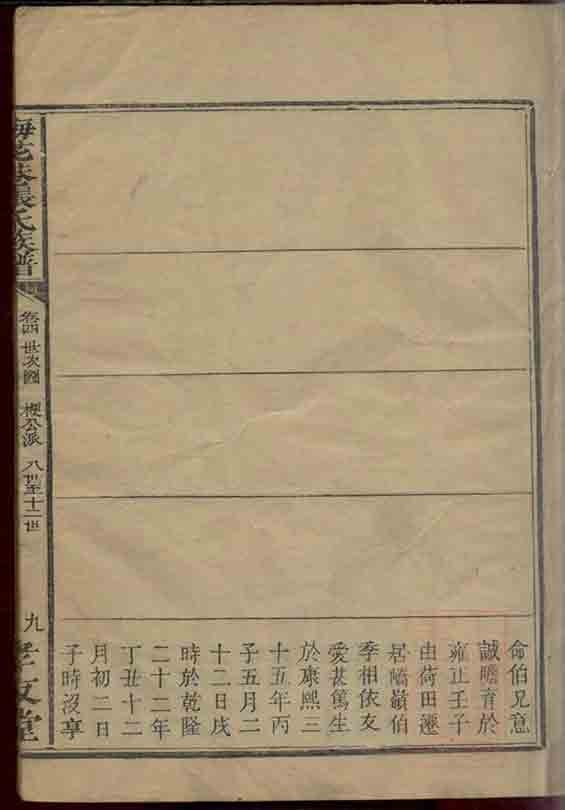 命伯兄意
誠瞻育於
雍正壬子
由荷田遷
居嶠嶺伯
季相依友
愛甚篤生
於康熙三
十五年丙
子五月二
十二日戌
時於乾隆
二十二年
丁丑十二
月初二日
子時沒享
張氏族譜
卷四 世次圖 公派 八世至十二世
九
孝友堂